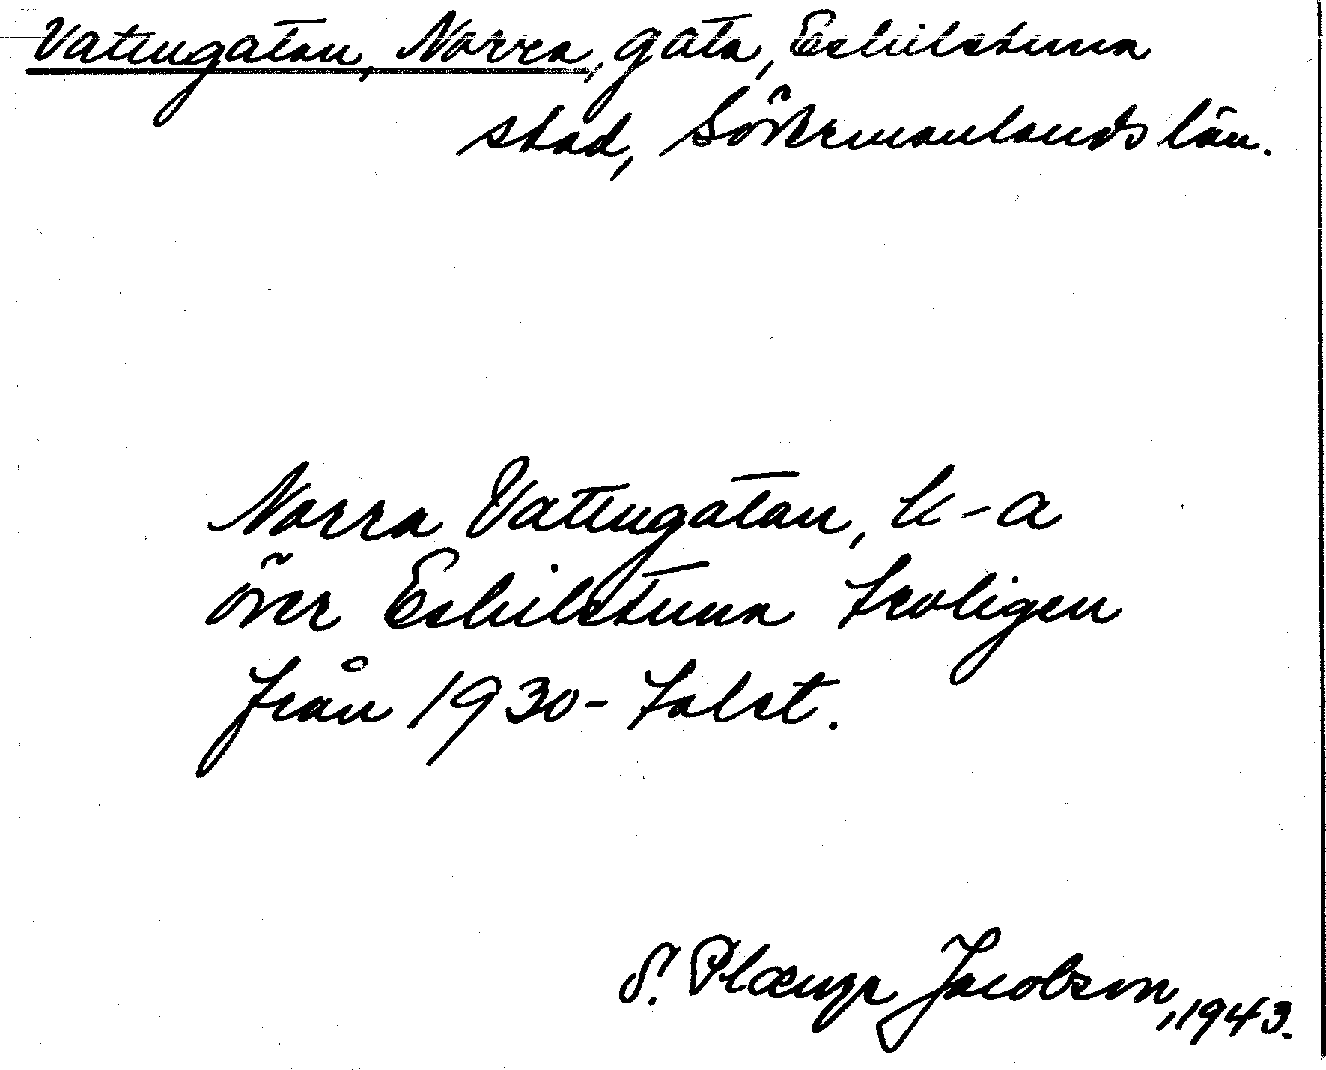 Vattugatan, Norra, gata, Eskilstuna
stad, Södermanlands län.
Norra Vattugatan, k-a
över Eskilstuna troligen
från 1930-talet.
S. Plænge Jacobson, 1943.